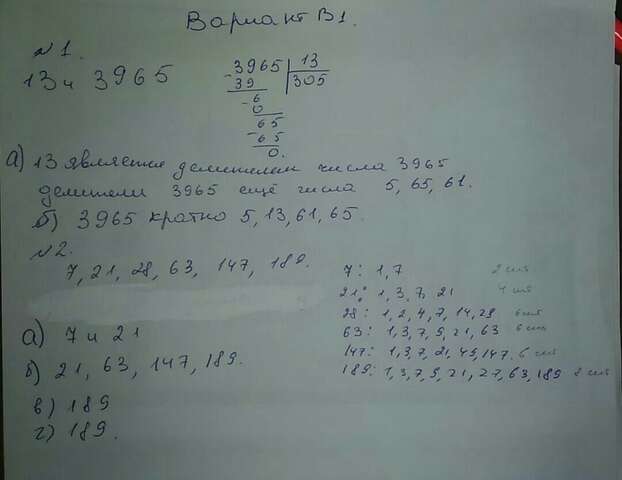 Вариант В1.
№1.
13 и 3965
3965 13
39 305
6
0
65
65
0.
а) 13 является делителем числа 3965
делители 3965 ещё числа 5, 65, 61.
б) 3965 кратно 5, 13, 61, 65.
№2.
7, 21, 28, 63, 147, 189.
7: 1, 7 2 шт
21: 1, 3, 7, 21 4 шт
28: 1, 2, 4, 7, 14, 28 6 шт
63: 1, 3, 7, 9, 21, 63 6 шт
147: 1, 3, 7, 21, 49, 147. 6 шт
189: 1, 3, 7, 9, 21, 27, 63, 189 8 шт
а) 7 и 21
б) 21, 63, 147, 189.
в) 189
г) 189.